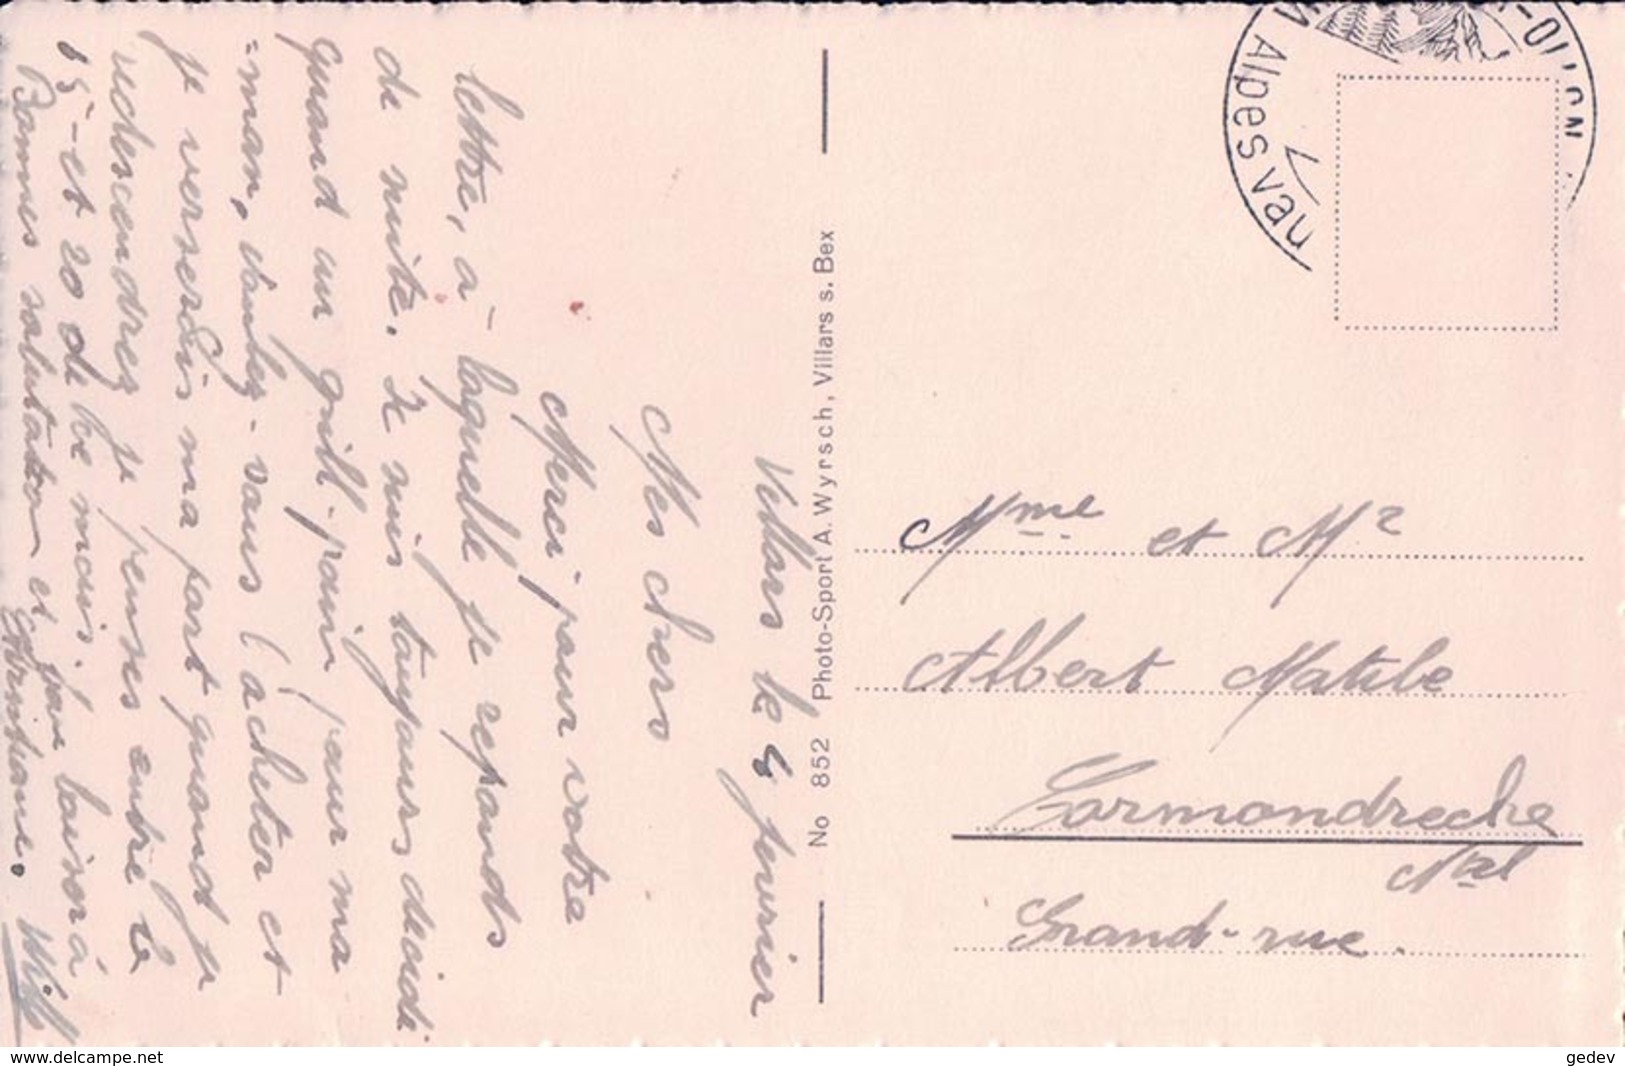 Villars le 4 février
Mes chers
Merci pour votre
lettre, à laquelle je reponds
de suite. Je suis toujours decidé
quand au grill-pain pour ma
-man, voulez-vous l'acheter et
je verserais ma part quand je
redescendrez je penses entre le
15 et 20 de ce mois.
Bonnes salutation et bon baiser à
Christiane. Willy
No 852 Photo-Sport A. Wyrsch, Villars s. Bex
Alpes vau
Mme et Mr
Albert Matile
Cormondreche
Ntel
Grand-rue.
www.delcampe.net
gedev